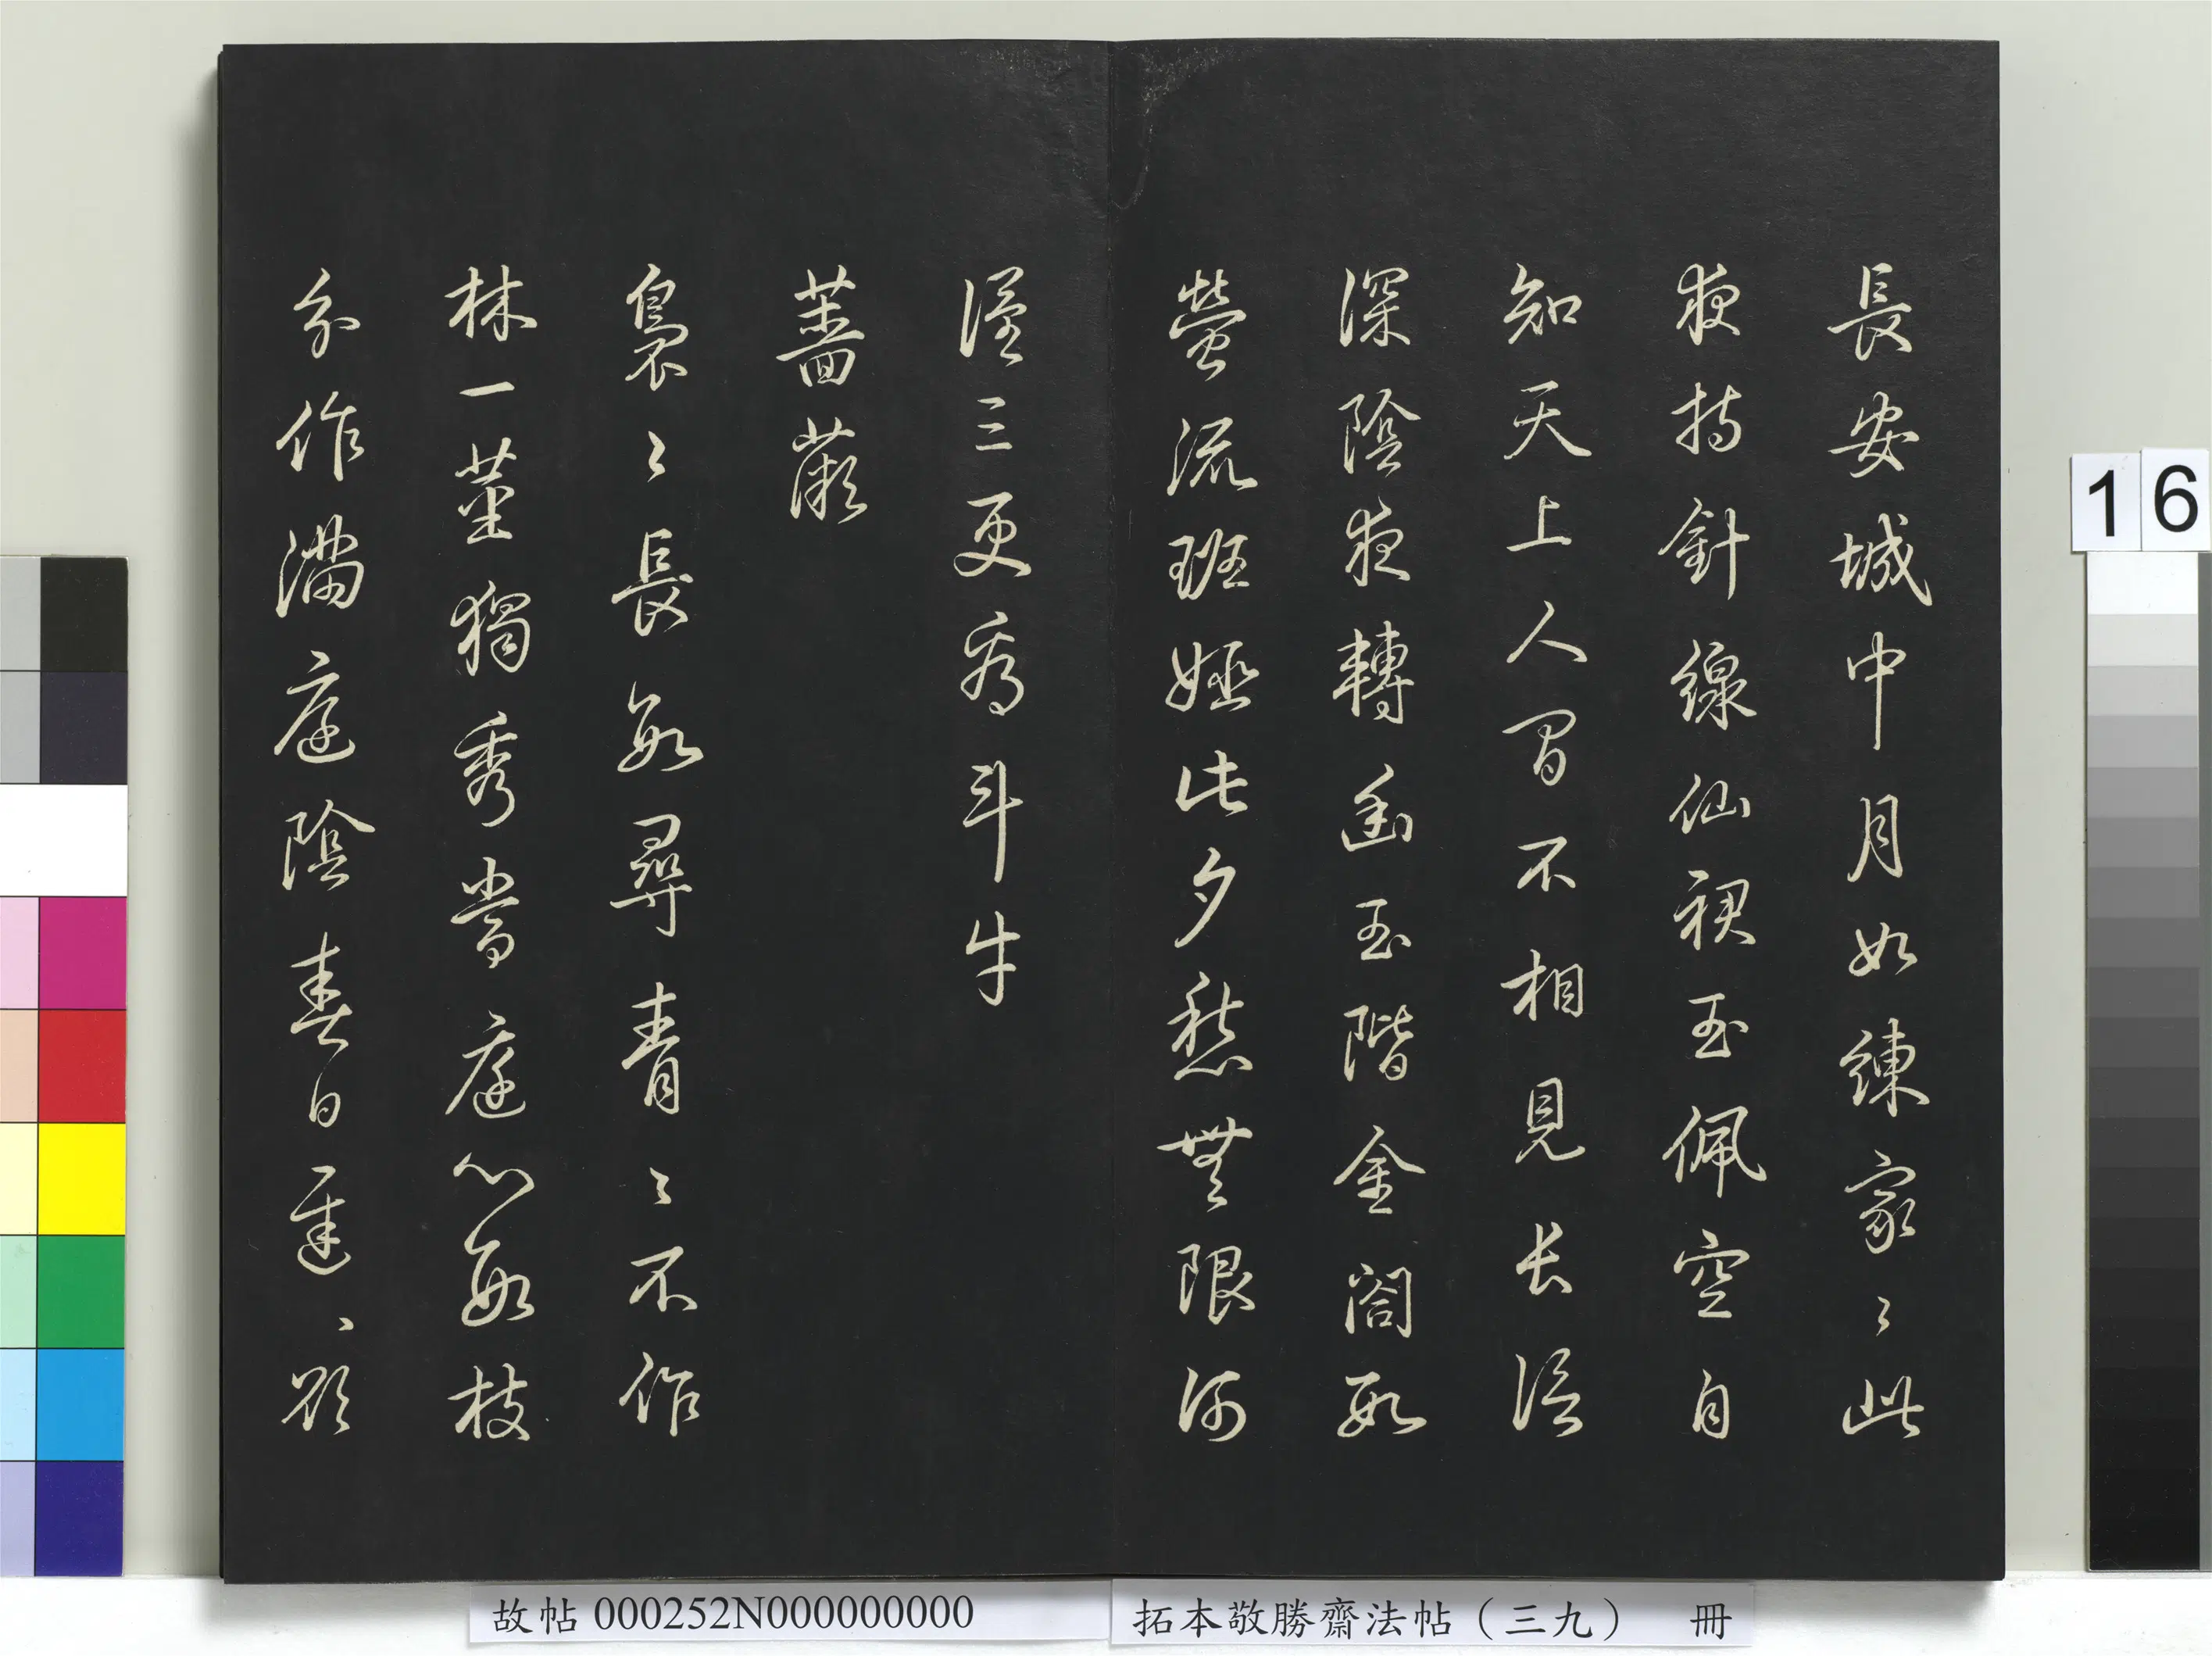 長安城中月如練家々此
夜持針線仙裙玉佩空自
知天上人間不相見長信
深陰夜轉幽玉階金閣數
螢流班姬此夕愁無限河
漢三更看斗牛
薔薇
裊々長數尋青々不作
林一莖獨秀當庭心數枝
分作滿庭陰春日遲々欲
故帖 000252N000000000
拓本敬勝齋法帖(三九) 冊
16